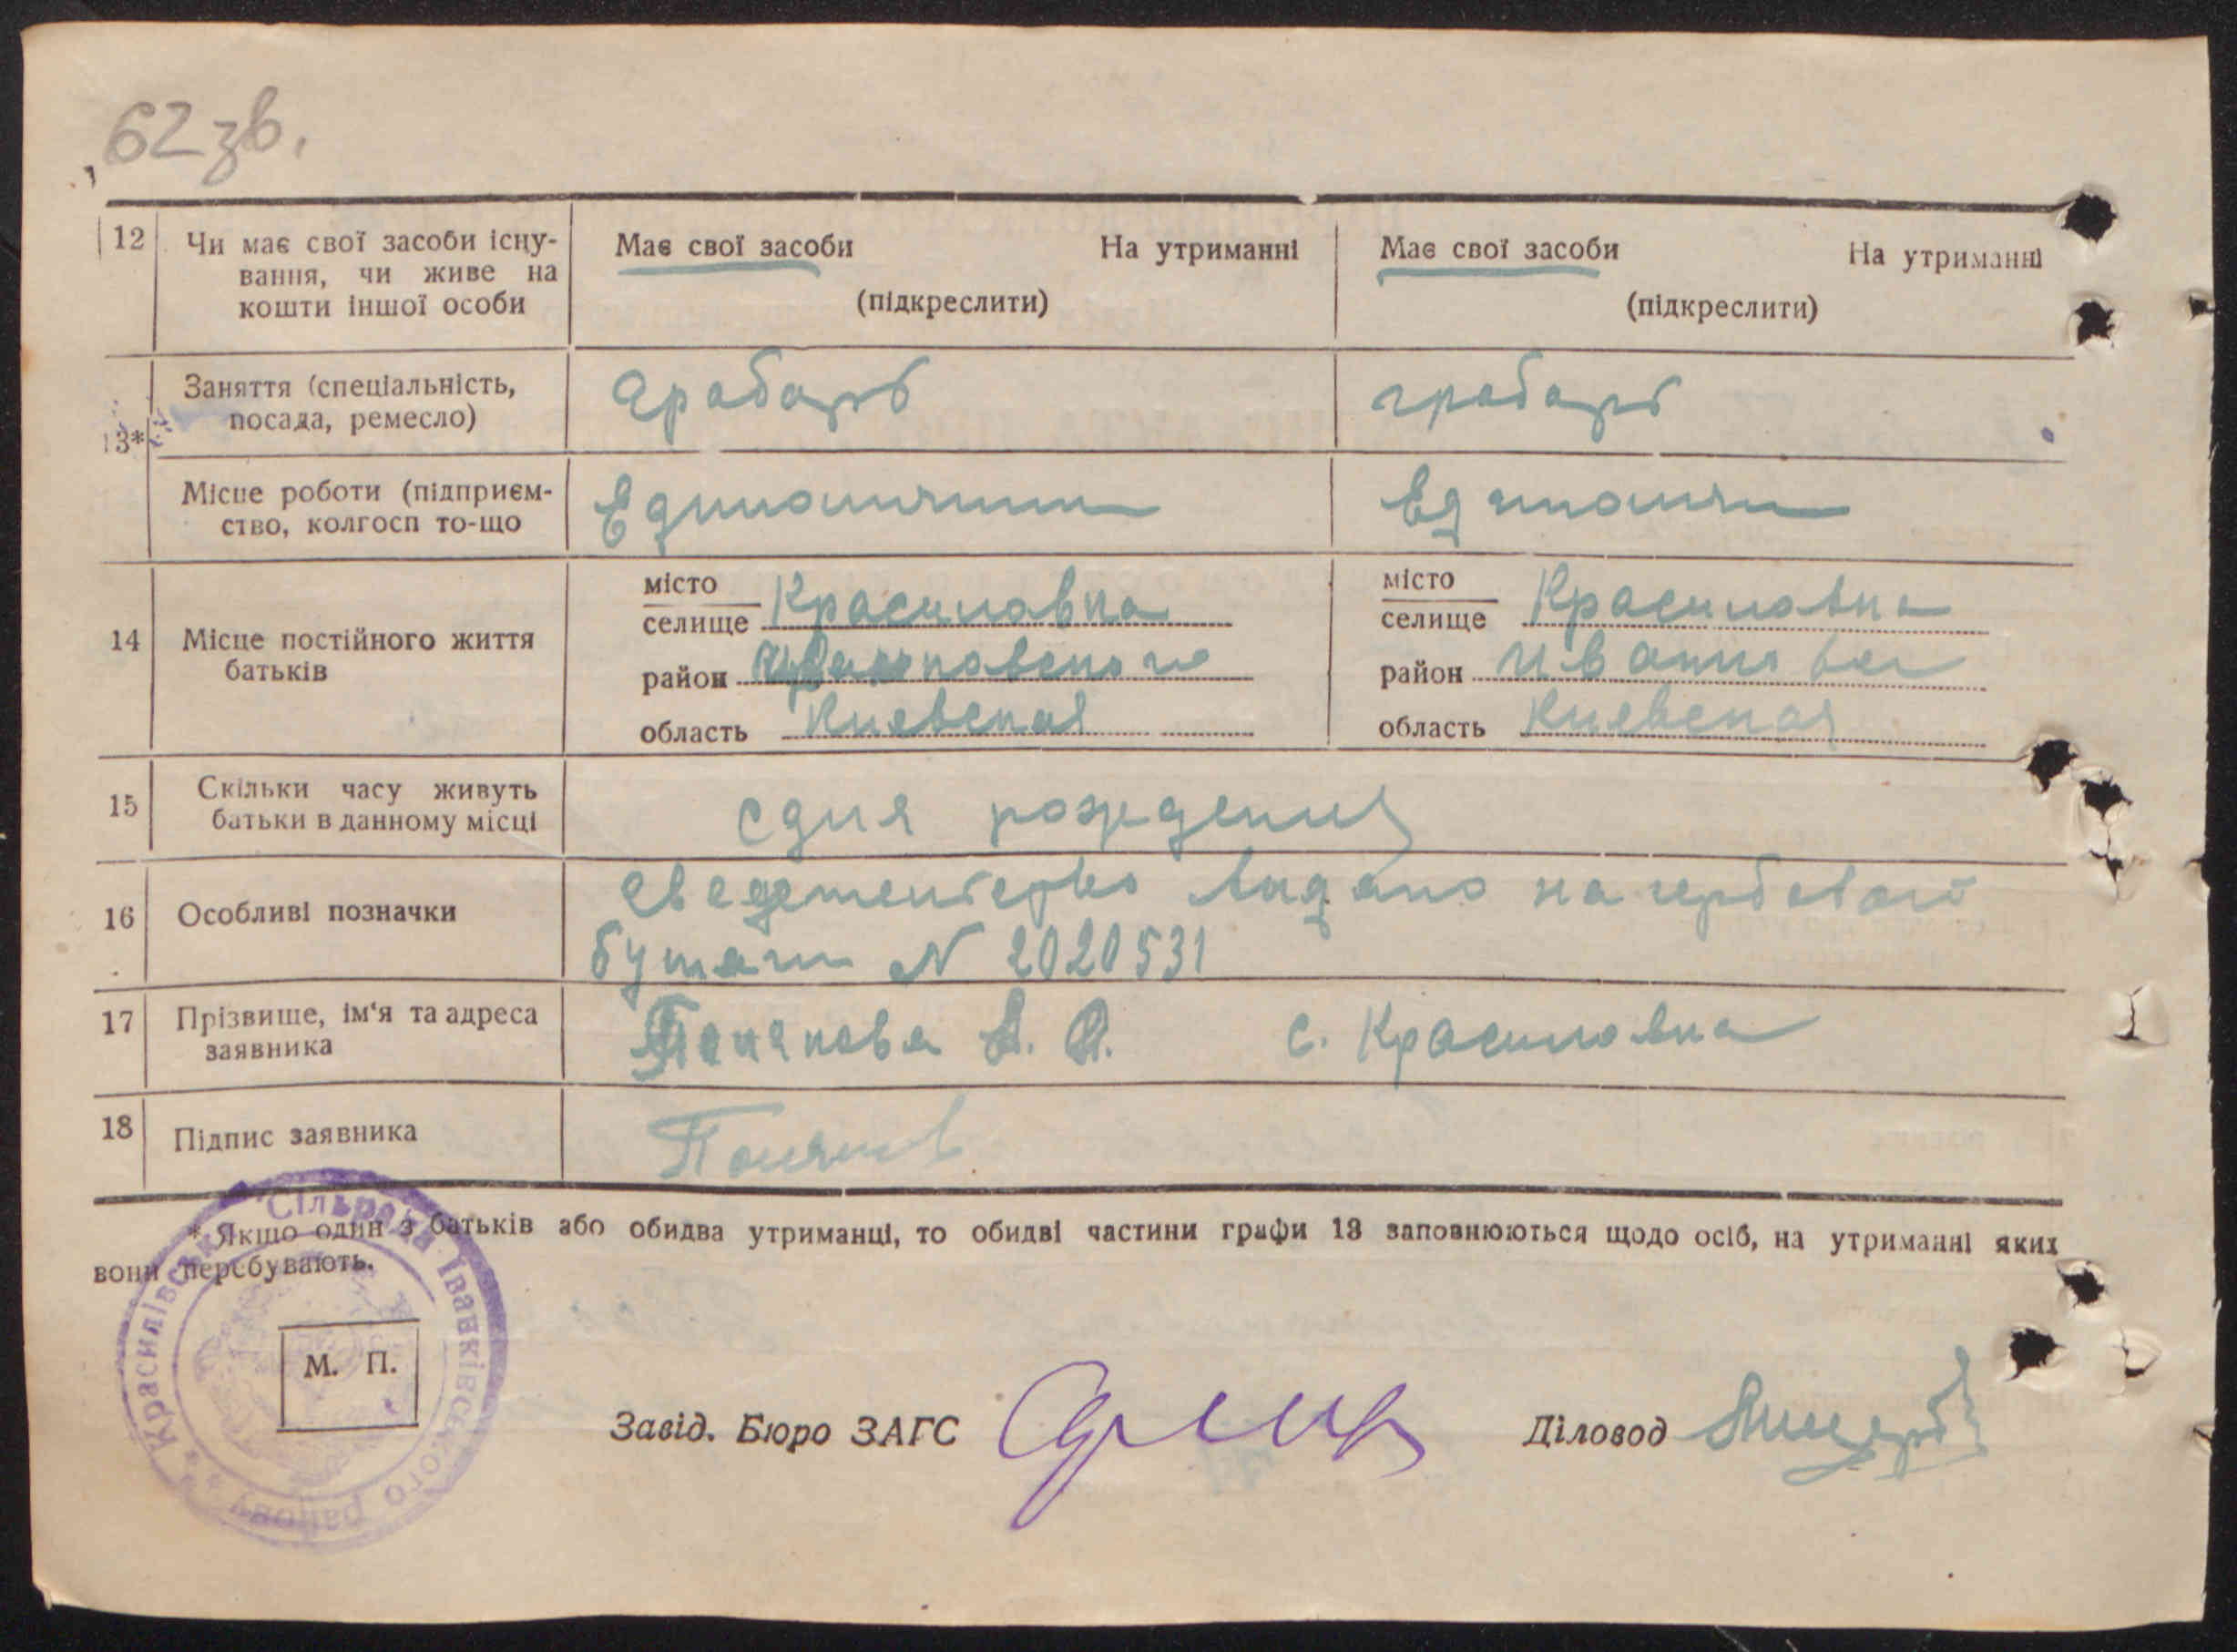 62 зв.
12 Чи має свої засоби існу- Має свої засоби На утриманні Має свої засоби На утриманні
вання, чи живе на
кошти іншої особи (підкреслити) (підкреслити)
Заняття (спеціальність, грабарь грабарь
13* посада, ремесло)
Місце роботи (підприєм-
ство, колгосп то-що
місто місто
селище Красиловка селище Красиловка
14 Місце постійного життя
батьків район район
область Киевская область Киевская
15 Скільки часу живуть
батьки в данному місці с дня рождения
16 Особливі позначки на гербовой
бумаги N 2020531
17 Прізвище, ім'я та адреса с. Красиловка
заявника
18 Підпис заявника
* Якщо один з батьків або обидва утриманці, то обидві частини графи 13 заповнюються щодо осіб, на утриманні яких
вони перебувають.
Красилівська Сільрада Іванківського району
М. П.
Завід. Бюро ЗАГС Діловод